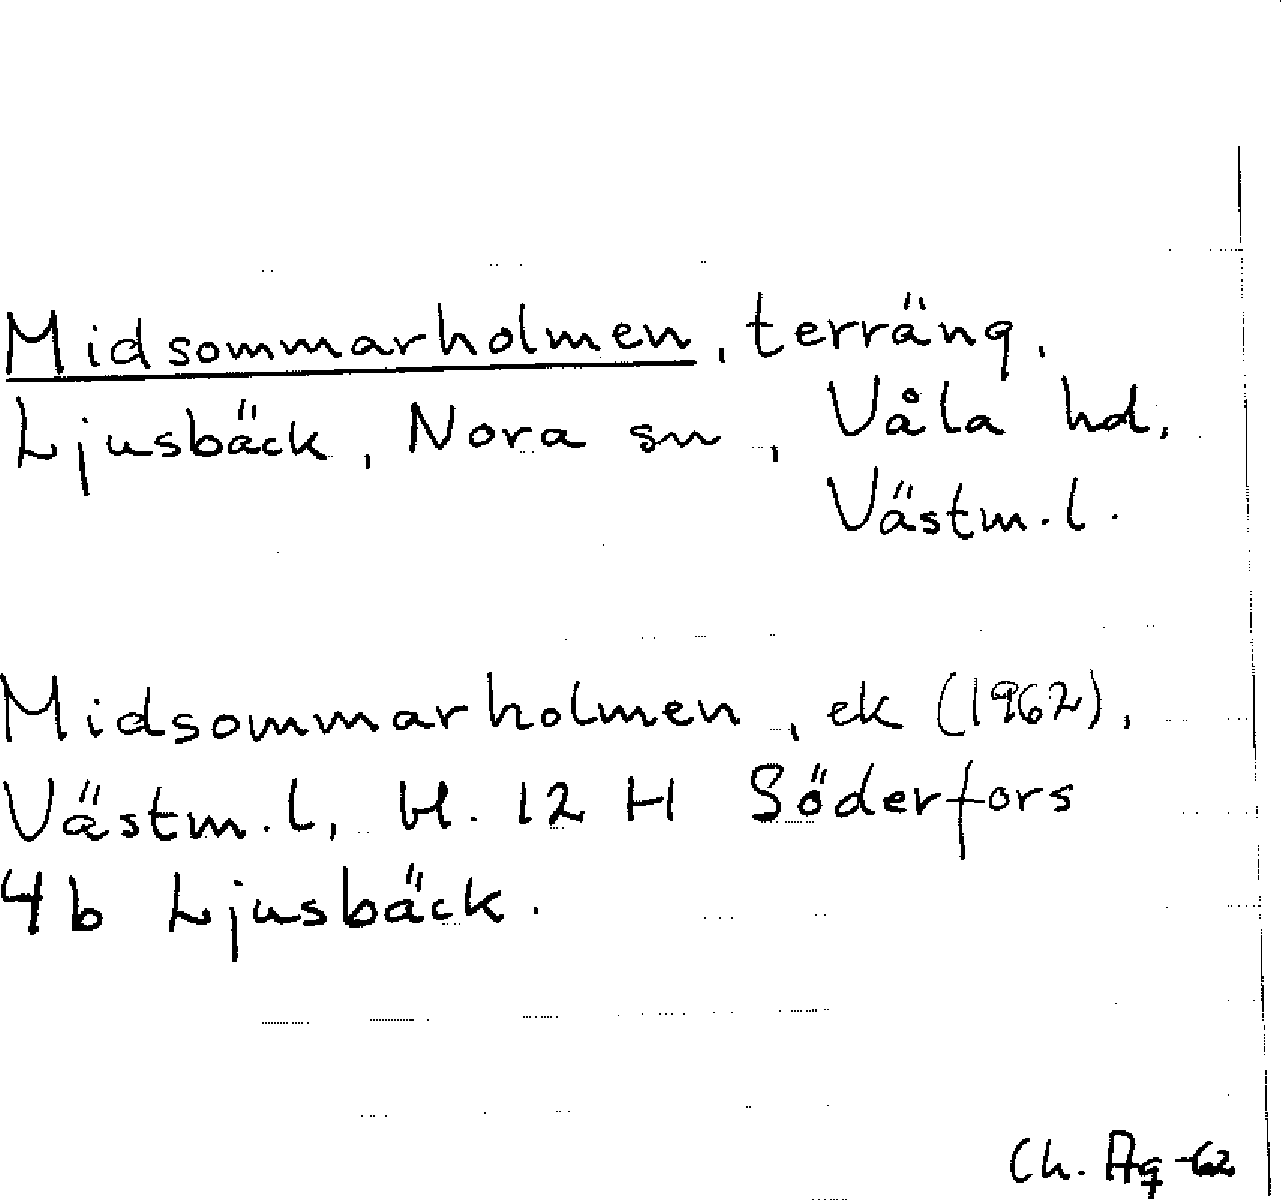 Midsommarholmen, terräng,
Ljusbäck, Nora sn, Våla hd,
Västm.l.
Midsommarholmen, ek (1962),
Västm.l, bl. 12 H Söderfors
4b Ljusbäck.
Ch. Ag -62